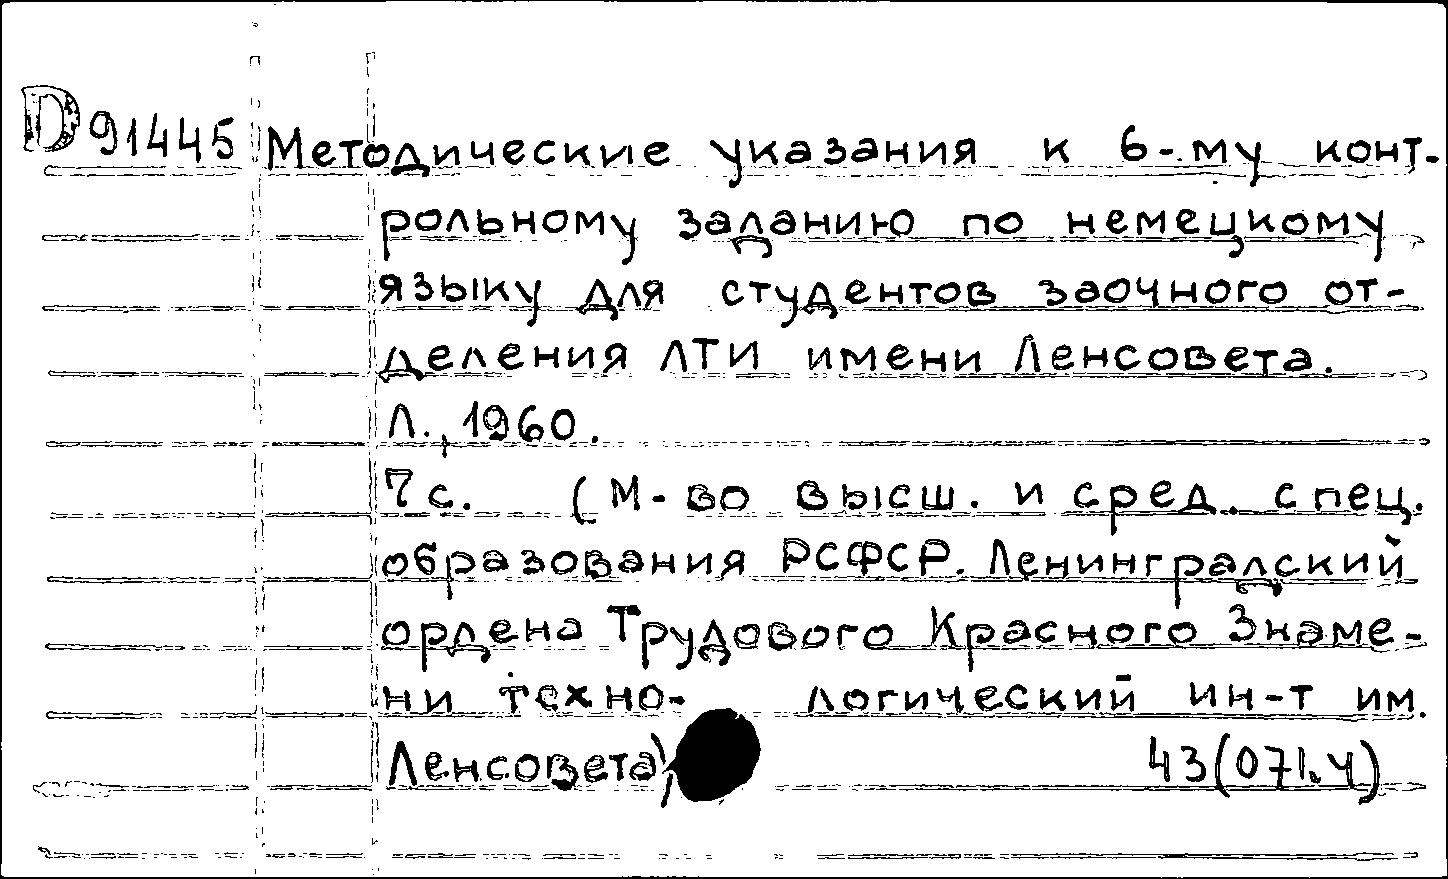 D 91445 Методические указания к 6-му конт-
рольному заданию по немецкому
языку для студентов заочного от-
деления ЛТИ имени Ленсовета.
Л., 1960.
7 с. (М-во высш. и сред. спец.
образования РСФСР. Ленинградский
ордена Трудового Красного Знаме-
ни техно- логический ин-т им.
Ленсовета)
43(071.4)